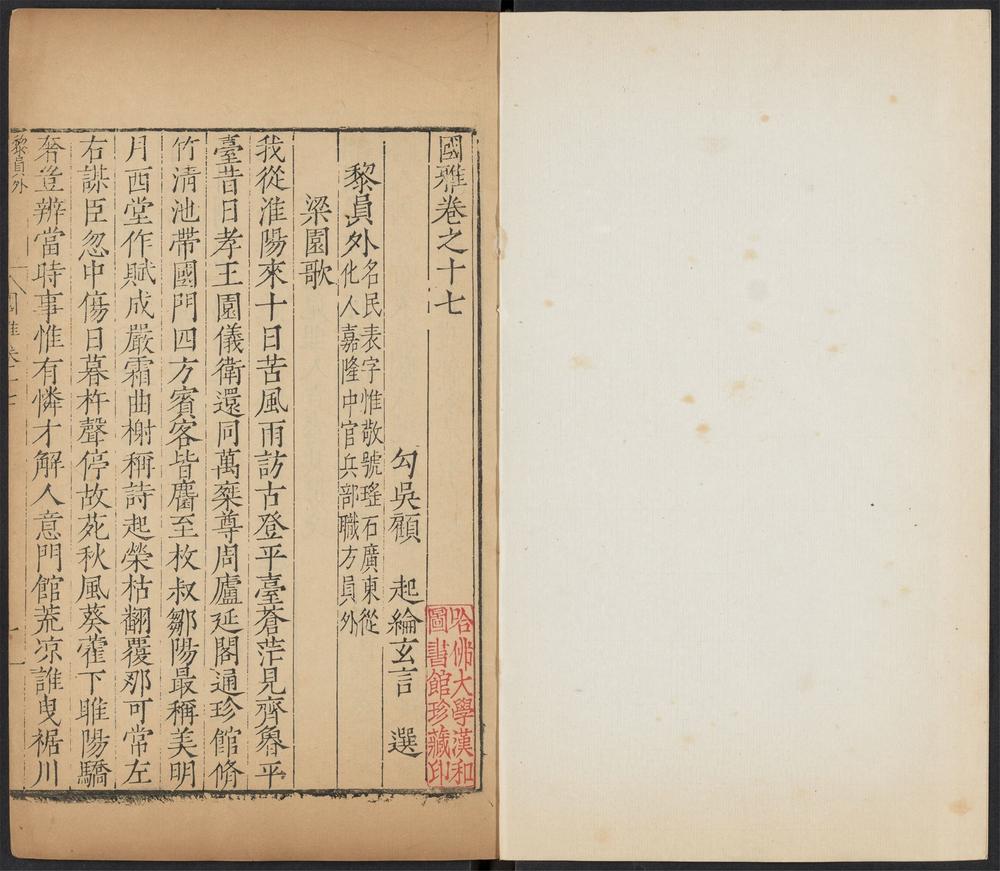 國雅卷之十七
勾吳顧 起綸玄言 選
黎員外
名民表字惟敬號瑤石廣東從
化人嘉隆中官兵部職方員外
梁園歌
我從淮陽來十日苦風雨訪古登平臺蒼茫見齊魯平
臺昔日孝王園儀衛還同萬椉尊周廬延閣通珍館脩
竹清池帶國門四方賓客皆麕至枚叔鄒陽最稱美明
月西堂作賦成嚴霜曲榭稱詩起榮枯翻覆那可常左
右謀臣忽中傷日暮杵聲停故苑秋風葵藿下睢陽驕
奢豈辨當時事惟有憐才解人意門館荒凉誰曳裾川
黎員外
哈佛大學漢和
圖書館珍藏印